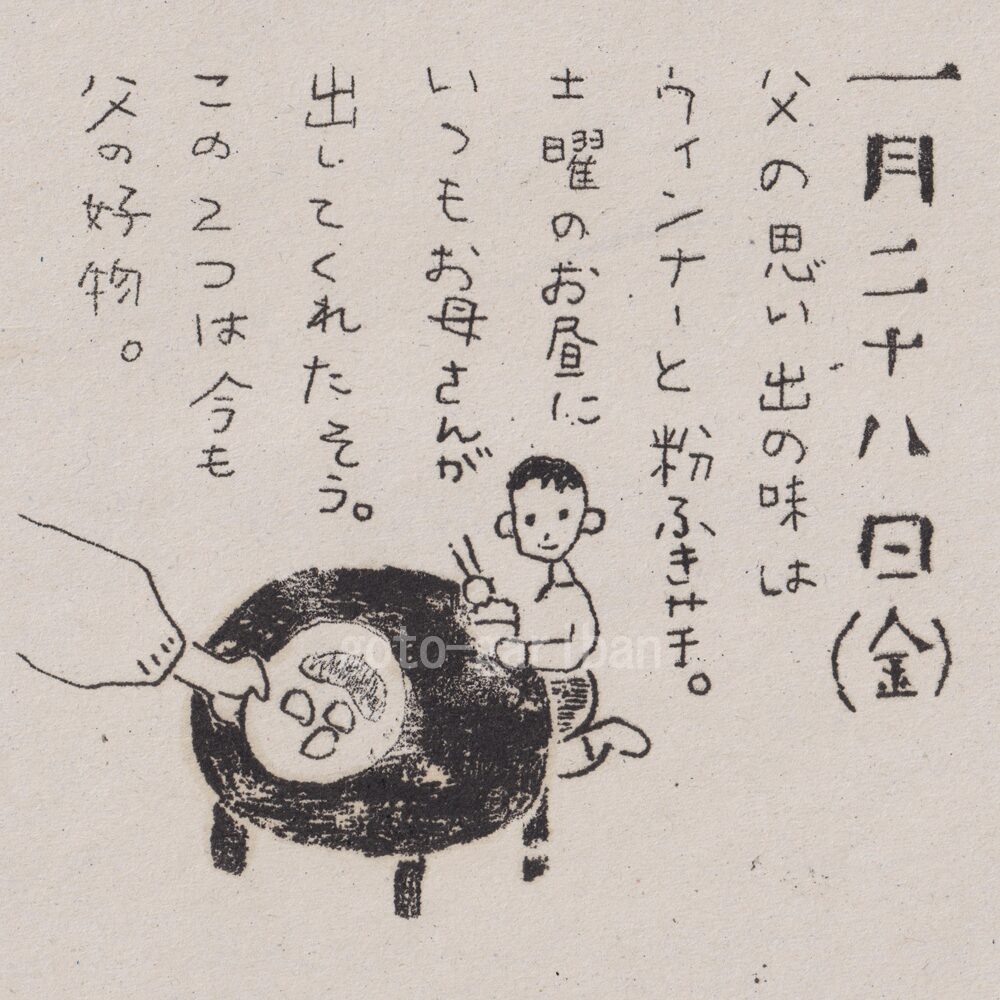 一月二十八日(金)
父の思い出の味は
ウィンナーと粉ふきイモ。
土曜のお昼に
いつもお母さんが
出してくれたそう。
この2つは今も
父の好物。